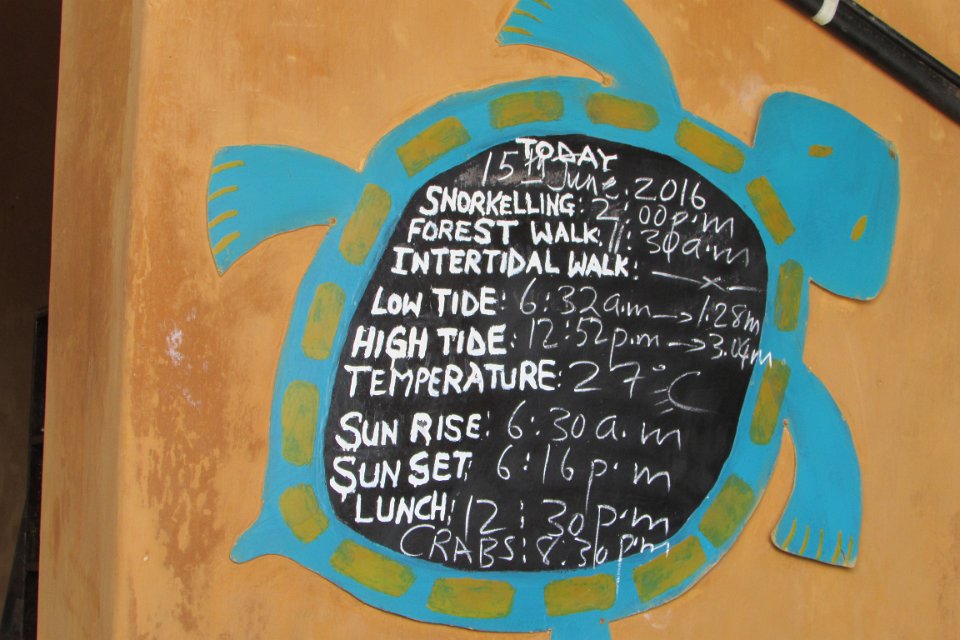 TODAY
15th June. 2016
SNORKELLING: 2:00p.m
FOREST WALK: 11:30a.m
INTERTIDAL WALK: —x—
LOW TIDE: 6:32a.m → 1.28m
HIGH TIDE: 12:52p.m → 3.04m
TEMPERATURE: 27°C
SUN RISE: 6:30a.m
SUN SET: 6:16p.m
LUNCH: 12:30p.m
CRABS: 8.30p.m